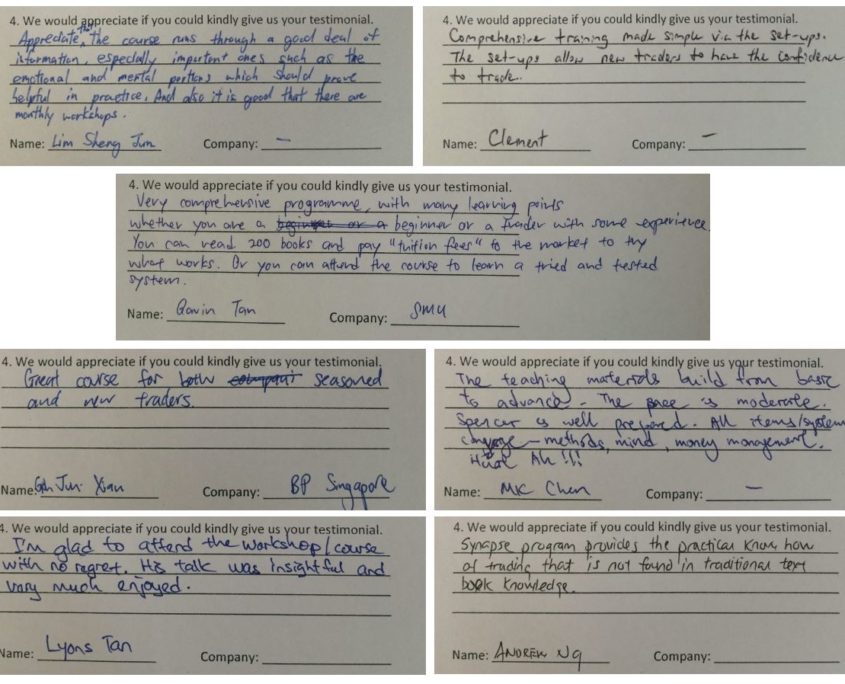 4. We would appreciate if you could kindly give us your testimonial.
Appreciate that the course runs through a good deal of
information, especially important ones such as the
emotional and mental portions which should prove
helpful in practice. And also it is good that there are
monthly workshops.
Name: Lim Sheng Jun Company: —
4. We would appreciate if you could kindly give us your testimonial.
Comprehensive training made simple via the set-ups.
The set-ups allow new traders to have the confidence
to trade.
Name: Clement Company: —
4. We would appreciate if you could kindly give us your testimonial.
Very comprehensive programme, with many learning points
whether you are a beginner or a beginner or a trader with some experience.
You can read 200 books and pay "tuition fees" to the market to try
what works. Or you can attend the course to learn a tried and tested
system.
Name: Gavin Tan Company: SMU
4. We would appreciate if you could kindly give us your testimonial.
Great course for both seasoned
and new traders.
Name: Goh Jun Xian Company: BP Singapore
4. We would appreciate if you could kindly give us your testimonial.
The teaching materials build from basic
to advance. The pace is moderate.
Spencer is well prepared. All items/system
converge – methods, mind, money management.
Huat Ah !!!
Name: MK Chen Company: —
4. We would appreciate if you could kindly give us your testimonial.
I'm glad to attend the workshop/course
with no regret. His talk was insightful and
vary much enjoyed.
Name: Lyons Tan Company:
4. We would appreciate if you could kindly give us your testimonial.
Synapse program provides the practical know how
of trading that is not found in traditional text
book knowledge.
Name: ANDREW NG Company: